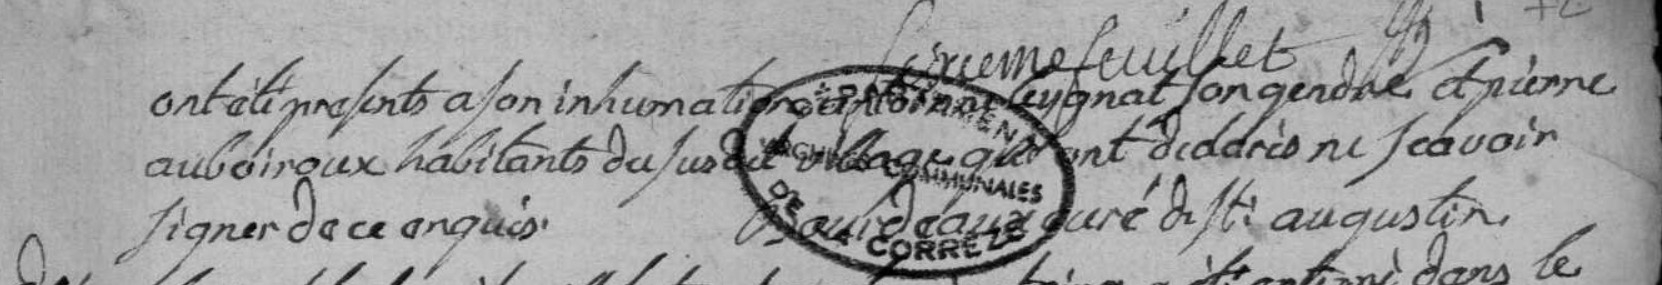 sixieme feuillet
ont été presents a son inhumation antoinne leygnat son gendre et pierre
auboiroux habitants du susdit village qui ont declarés ne scavoir
signer de ce enquis. curé de st. augustin.
DEPARTEMENT
ARCHIVES COMMUNALES
DE LA CORREZE
a été enterré dans le